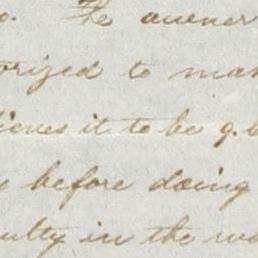 o. The owner
orized to man
lieves it to be g. b
before doing
culty in the wa